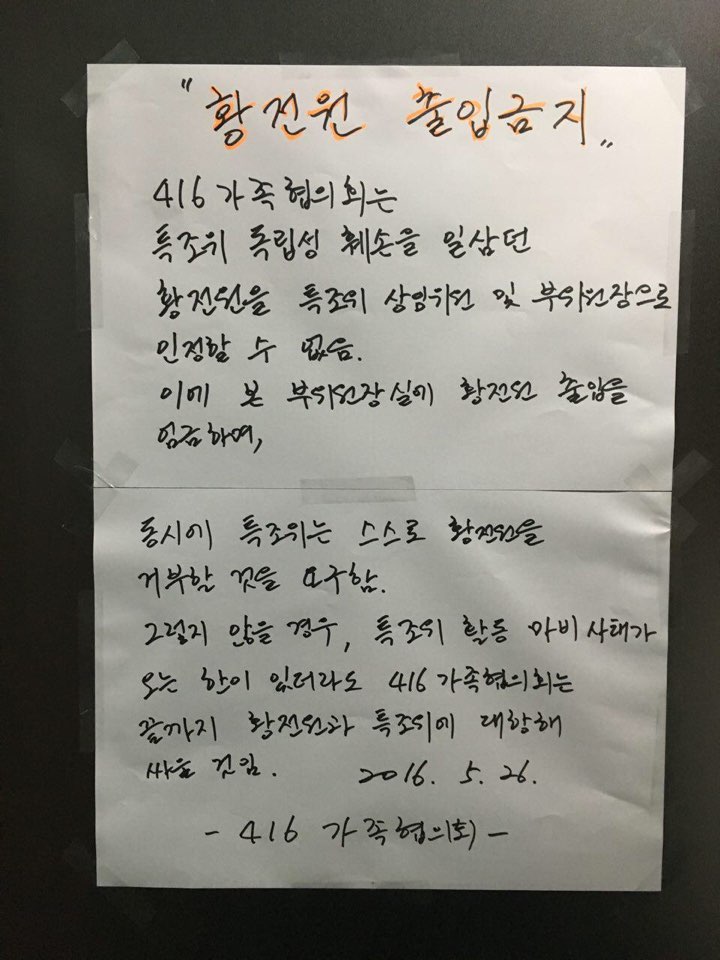 "황전원 출입금지"
416 가족협의회는
특조위 독립성 훼손을 일삼던
황전원을 특조위 상임위원 및 부위원장으로
인정할 수 없음.
이에 본 부위원장실에 황전원 출입을
엄금하며,
동시에 특조위는 스스로 황전원을
거부할 것을 요구함.
그렇지 않을 경우, 특조위 활동 마비사태가
오는 한이 있더라도 416 가족협의회는
끝까지 황전원과 특조위에 대항해
싸울 것임. 2016. 5. 26.
- 416 가족협의회 -